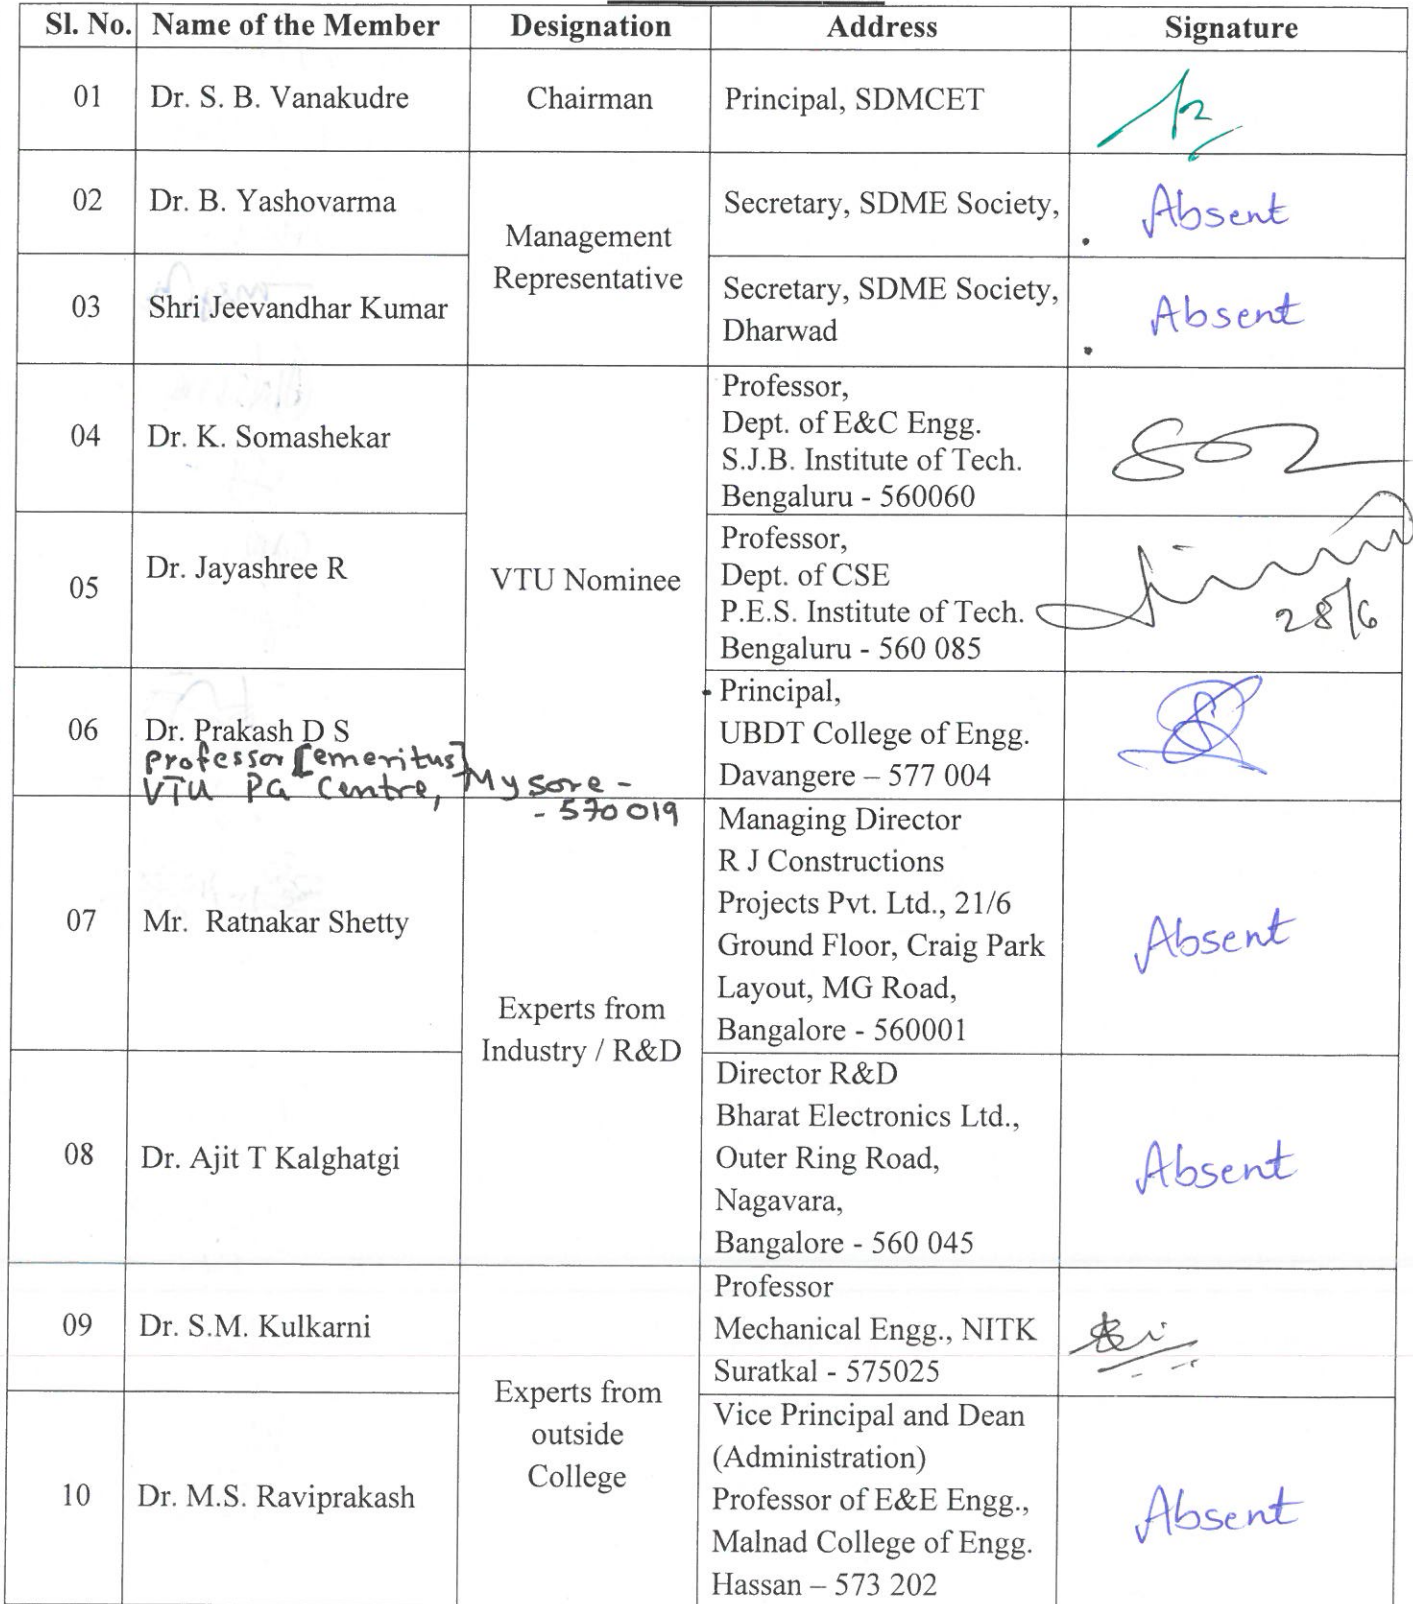 Sl. No. Name of the Member Designation Address Signature
01 Dr. S. B. Vanakudre Chairman Principal, SDMCET
02 Dr. B. Yashovarma Management Representative Secretary, SDME Society, Absent
03 Shri Jeevandhar Kumar Secretary, SDME Society,
Dharwad Absent
04 Dr. K. Somashekar VTU Nominee Professor,
Dept. of E&C Engg.
S.J.B. Institute of Tech.
Bengaluru - 560060
05 Dr. Jayashree R Professor,
Dept. of CSE
P.E.S. Institute of Tech.
Bengaluru - 560 085
28/6
06 Dr. Prakash D S
Professor [emeritus]
VTU PG Centre, Mysore -
- 570019
Principal,
UBDT College of Engg.
Davangere – 577 004
07 Mr. Ratnakar Shetty Experts from
Industry / R&D
Managing Director
R J Constructions
Projects Pvt. Ltd., 21/6
Ground Floor, Craig Park
Layout, MG Road,
Bangalore - 560001
Absent
08 Dr. Ajit T Kalghatgi
Director R&D
Bharat Electronics Ltd.,
Outer Ring Road,
Nagavara,
Bangalore - 560 045
Absent
09 Dr. S.M. Kulkarni Experts from
outside
College
Professor
Mechanical Engg., NITK
Suratkal - 575025
10 Dr. M.S. Raviprakash
Vice Principal and Dean
(Administration)
Professor of E&E Engg.,
Malnad College of Engg.
Hassan – 573 202
Absent